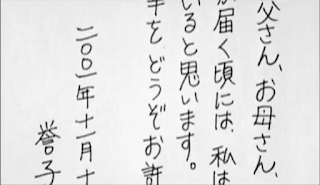 父さん、お母さん、
届く頃には、私は
いると思います。
をどうぞお許
二〇〇一年十一月十
誉子